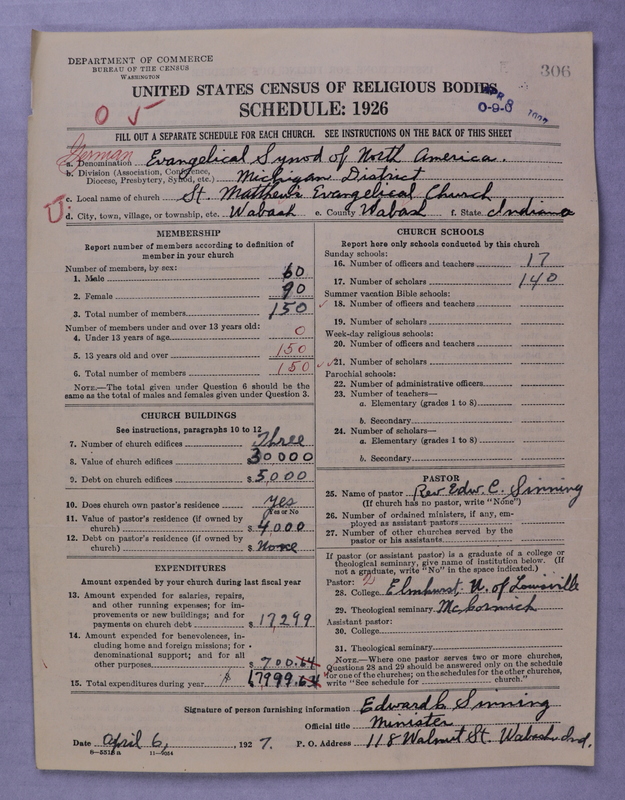 DEPARTMENT OF COMMERCE
BUREAU OF THE CENSUS
WASHINGTON
306
UNITED STATES CENSUS OF RELIGIOUS BODIES
SCHEDULE: 1926
APR 8
0-9-0
0 5
FILL OUT A SEPARATE SCHEDULE FOR EACH CHURCH. SEE INSTRUCTIONS ON THE BACK OF THIS SHEET
German
a. Denomination Evangelical Synod of North America.
b. Division (Association, Conference, Diocese, Presbytery, Synod, etc.) Michigan District
c. Local name of church St. Matthew's Evangelical Church
d. City, town, village, or township, etc. Wabash e. County Wabash f. State Indiana
MEMBERSHIP
Report number of members according to definition of
member in your church
Number of members, by sex:
1. Male 60
2. Female 90
3. Total number of members 150
Number of members under and over 13 years old:
4. Under 13 years of age 0
5. 13 years old and over 150
6. Total number of members 150
NOTE.—The total given under Question 6 should be the
same as the total of males and females given under Question 3.
CHURCH BUILDINGS
See instructions, paragraphs 10 to 12
7. Number of church edifices Three
8. Value of church edifices 30000
9. Debt on church edifices $5,000
10. Does church own pastor's residence yes
Yes or No
11. Value of pastor's residence (if owned by
church) $4000
12. Debt on pastor's residence (if owned by
church) $ None
EXPENDITURES
Amount expended by your church during last fiscal year
13. Amount expended for salaries, repairs,
and other running expenses; for im-
provements or new buildings; and for
payments on church debt $17,299
14. Amount expended for benevolences, in-
cluding home and foreign missions; for
denominational support; and for all
other purposes $700.64
15. Total expenditures during year $17999.64
CHURCH SCHOOLS
Report here only schools conducted by this church
Sunday schools:
16. Number of officers and teachers 17
17. Number of scholars 140
Summer vacation Bible schools:
18. Number of officers and teachers
19. Number of scholars
Week-day religious schools:
20. Number of officers and teachers
21. Number of scholars
Parochial schools:
22. Number of administrative officers
23. Number of teachers—
a. Elementary (grades 1 to 8)
b. Secondary
24. Number of scholars—
a. Elementary (grades 1 to 8)
b. Secondary
PASTOR
25. Name of pastor Rev Edw. C. Sinning
(If church has no pastor, write "None")
26. Number of ordained ministers, if any, em-
ployed as assistant pastors
27. Number of other churches served by the
pastor or his assistants
If pastor (or assistant pastor) is a graduate of a college or
theological seminary, give name of institution below. (If
not a graduate, write "No" in the space indicated.)
Pastor: 2
28. College Elmhurst, U. of Louisville
29. Theological seminary McCormick
Assistant pastor:
30. College
31. Theological seminary
NOTE.—Where one pastor serves two or more churches,
Questions 28 and 29 should be answered only on the schedule
for one of the churches; on the schedules for the other churches,
write "See schedule for church."
Signature of person furnishing information Edward C Sinning
Official title Minister
Date April 6, 1927. P. O. Address 118 Walnut St. Wabash Ind.
8-5513 a